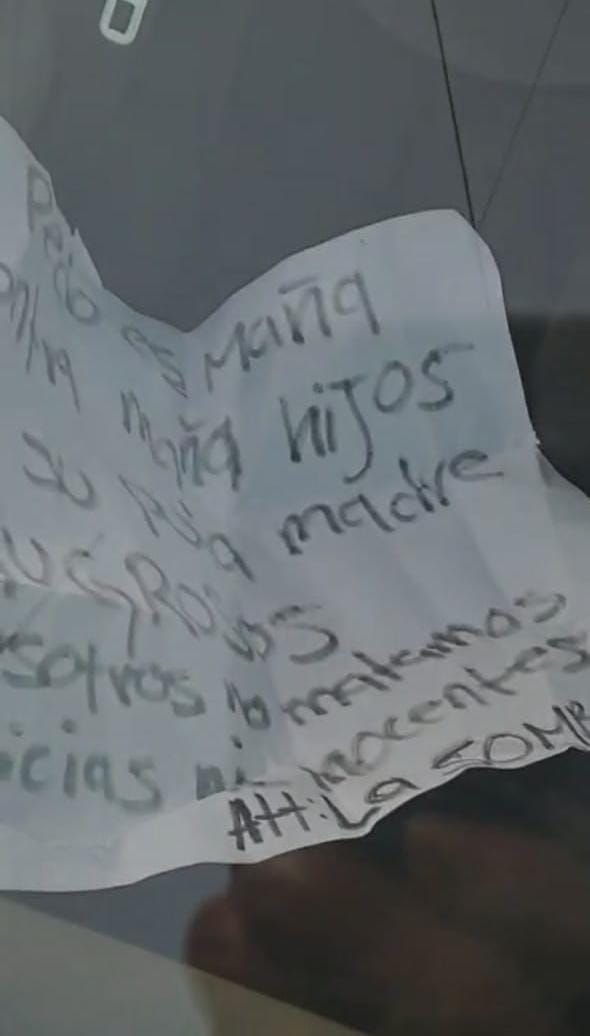 es Maña
maña hijos
su pu a madre
UGROSOS
sotros no matamos
icias ni inocentes
Att: La SOMB